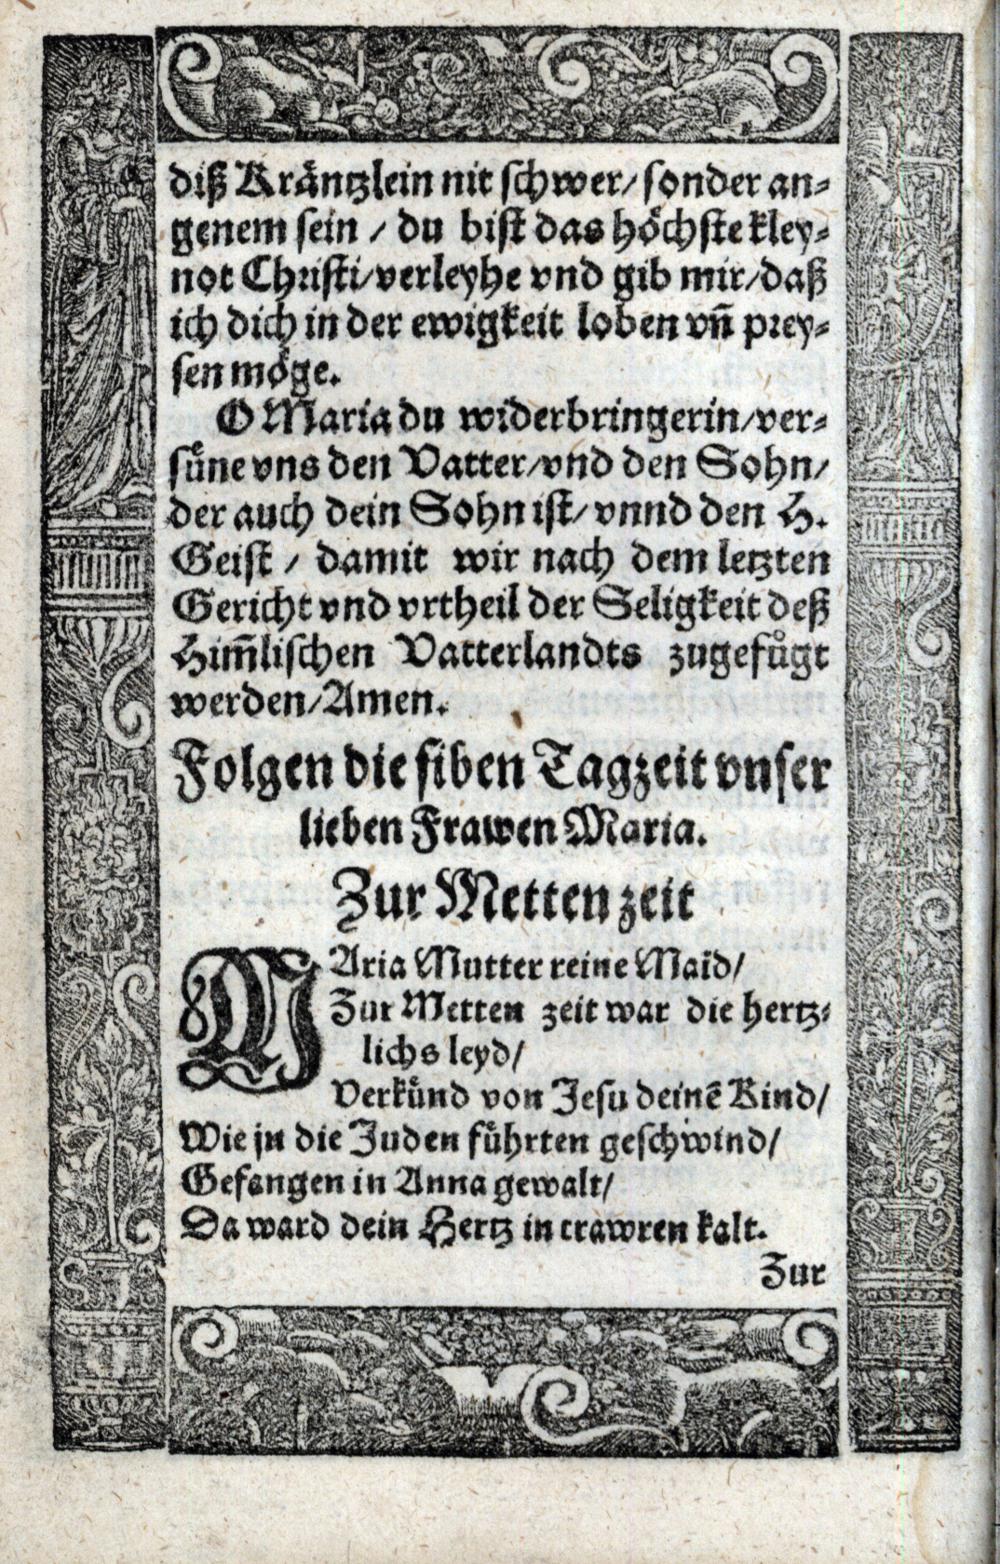 diß Kräntzlein nit schwer/ sonder an-
genem sein / du bist das höchste kley-
not Christi/ verleyhe vnd gib mir/ daß
ich dich in der ewigkeit loben vñ prey-
sen möge.
O Maria du widerbringerin/ ver-
süne vns den Vatter/ vnd den Sohn/
der auch dein Sohn ist/ vnnd den H.
Geist / damit wir nach dem letzten
Gericht vnd vrtheil der Seligkeit deß
Him̃lischen Vatterlandts zugefůgt
werden/ Amen.
Folgen die siben Tagzeit vnser
lieben Frawen Maria.
Zur Metten zeit
MAria Mutter reine Maid/
Zur Metten zeit war die hertz-
lichs leyd/
Verkünd von Jesu deinẽ Kind/
Wie jn die Juden führten geschwind/
Gefangen in Anna gewalt/
Da ward dein Hertz in trawren kalt.
Zur